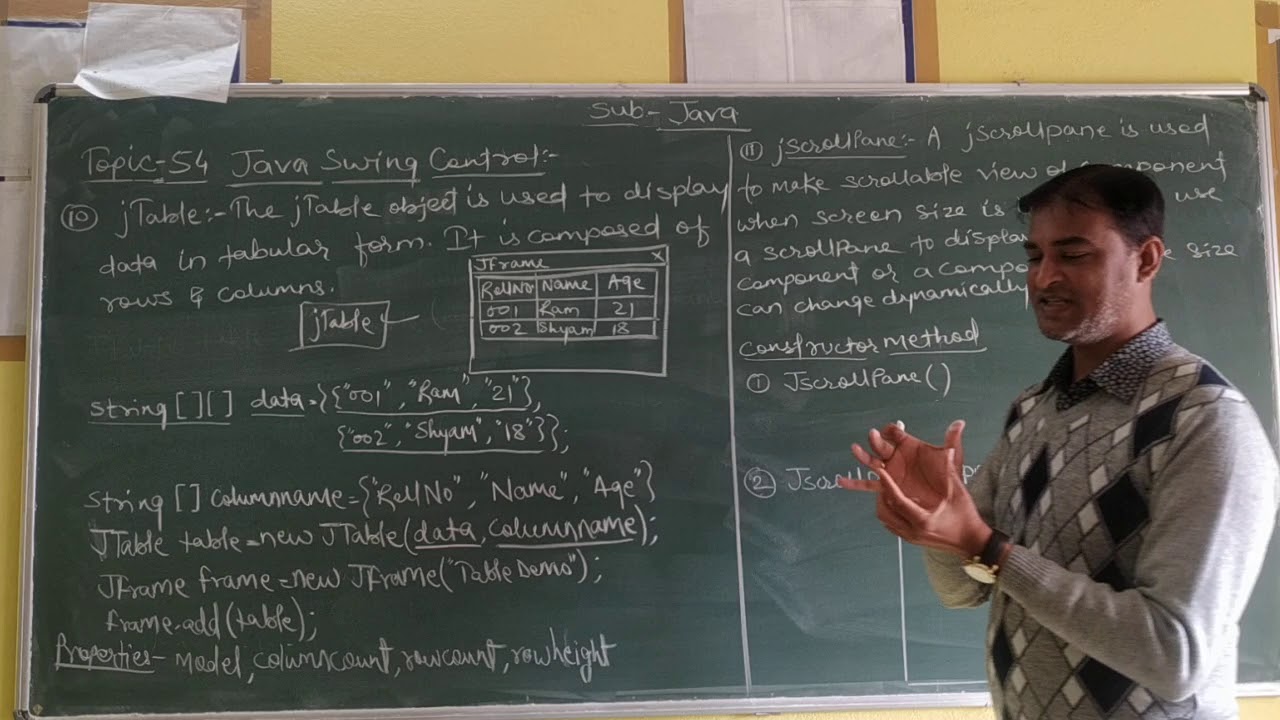 Sub-Java
Topic-54 Java Swing Control:-
(10) jTable:- The jTable object is used to display
data in tabular form. It is composed of
rows & columns.
jTable
JFrame x
RollNo Name Age
001 Ram 21
002 Shyam 18
String [][] data={{"001","Ram","21"},
{"002","Shyam","18"}};
String [] columnname={"RollNo","Name","Age"}
JTable table=new JTable(data,columnname);
JFrame frame=new JFrame("TableDemo");
frame.add(table);
Properties- Model, columncount, rowcount, rowheight
(11) jScrollPane:- A jscrollpane is used
to make scrollable view of component
when screen size is use
a scrollPane to display size
component or a
can change dynamically
Constructor method
(1) JscrollPane()
(2)